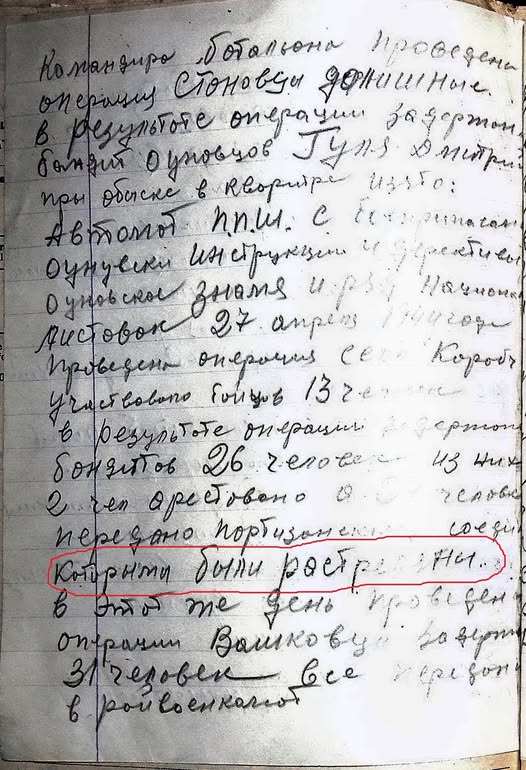 Командира ботальона проведена
операция Становцы долишные.
в результоте операции задержон
бандит оуновцов Гуля Дмитри
при обыске в квортре изято:
Автомот П.П.Ш. с боеприпасам
оунувски инструкции и деректив
оуновское знамя и ряд национ
листовок 27 апреля 1944 года
Проведена операция село Коров
участвовало бойцов 13 чел
в результоте операции задержон
бондитов 26 человек из них
2 чел арестовано а человек
передано портизонский соеди
которыми были растреляны.
в этот же день проведен
операции Вашковцы задерж
31 человек все передан
в ройвоенкомот